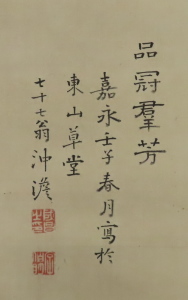 品冠羣芳
嘉永壬子春月寫於
東山草堂
七十七翁沖澹